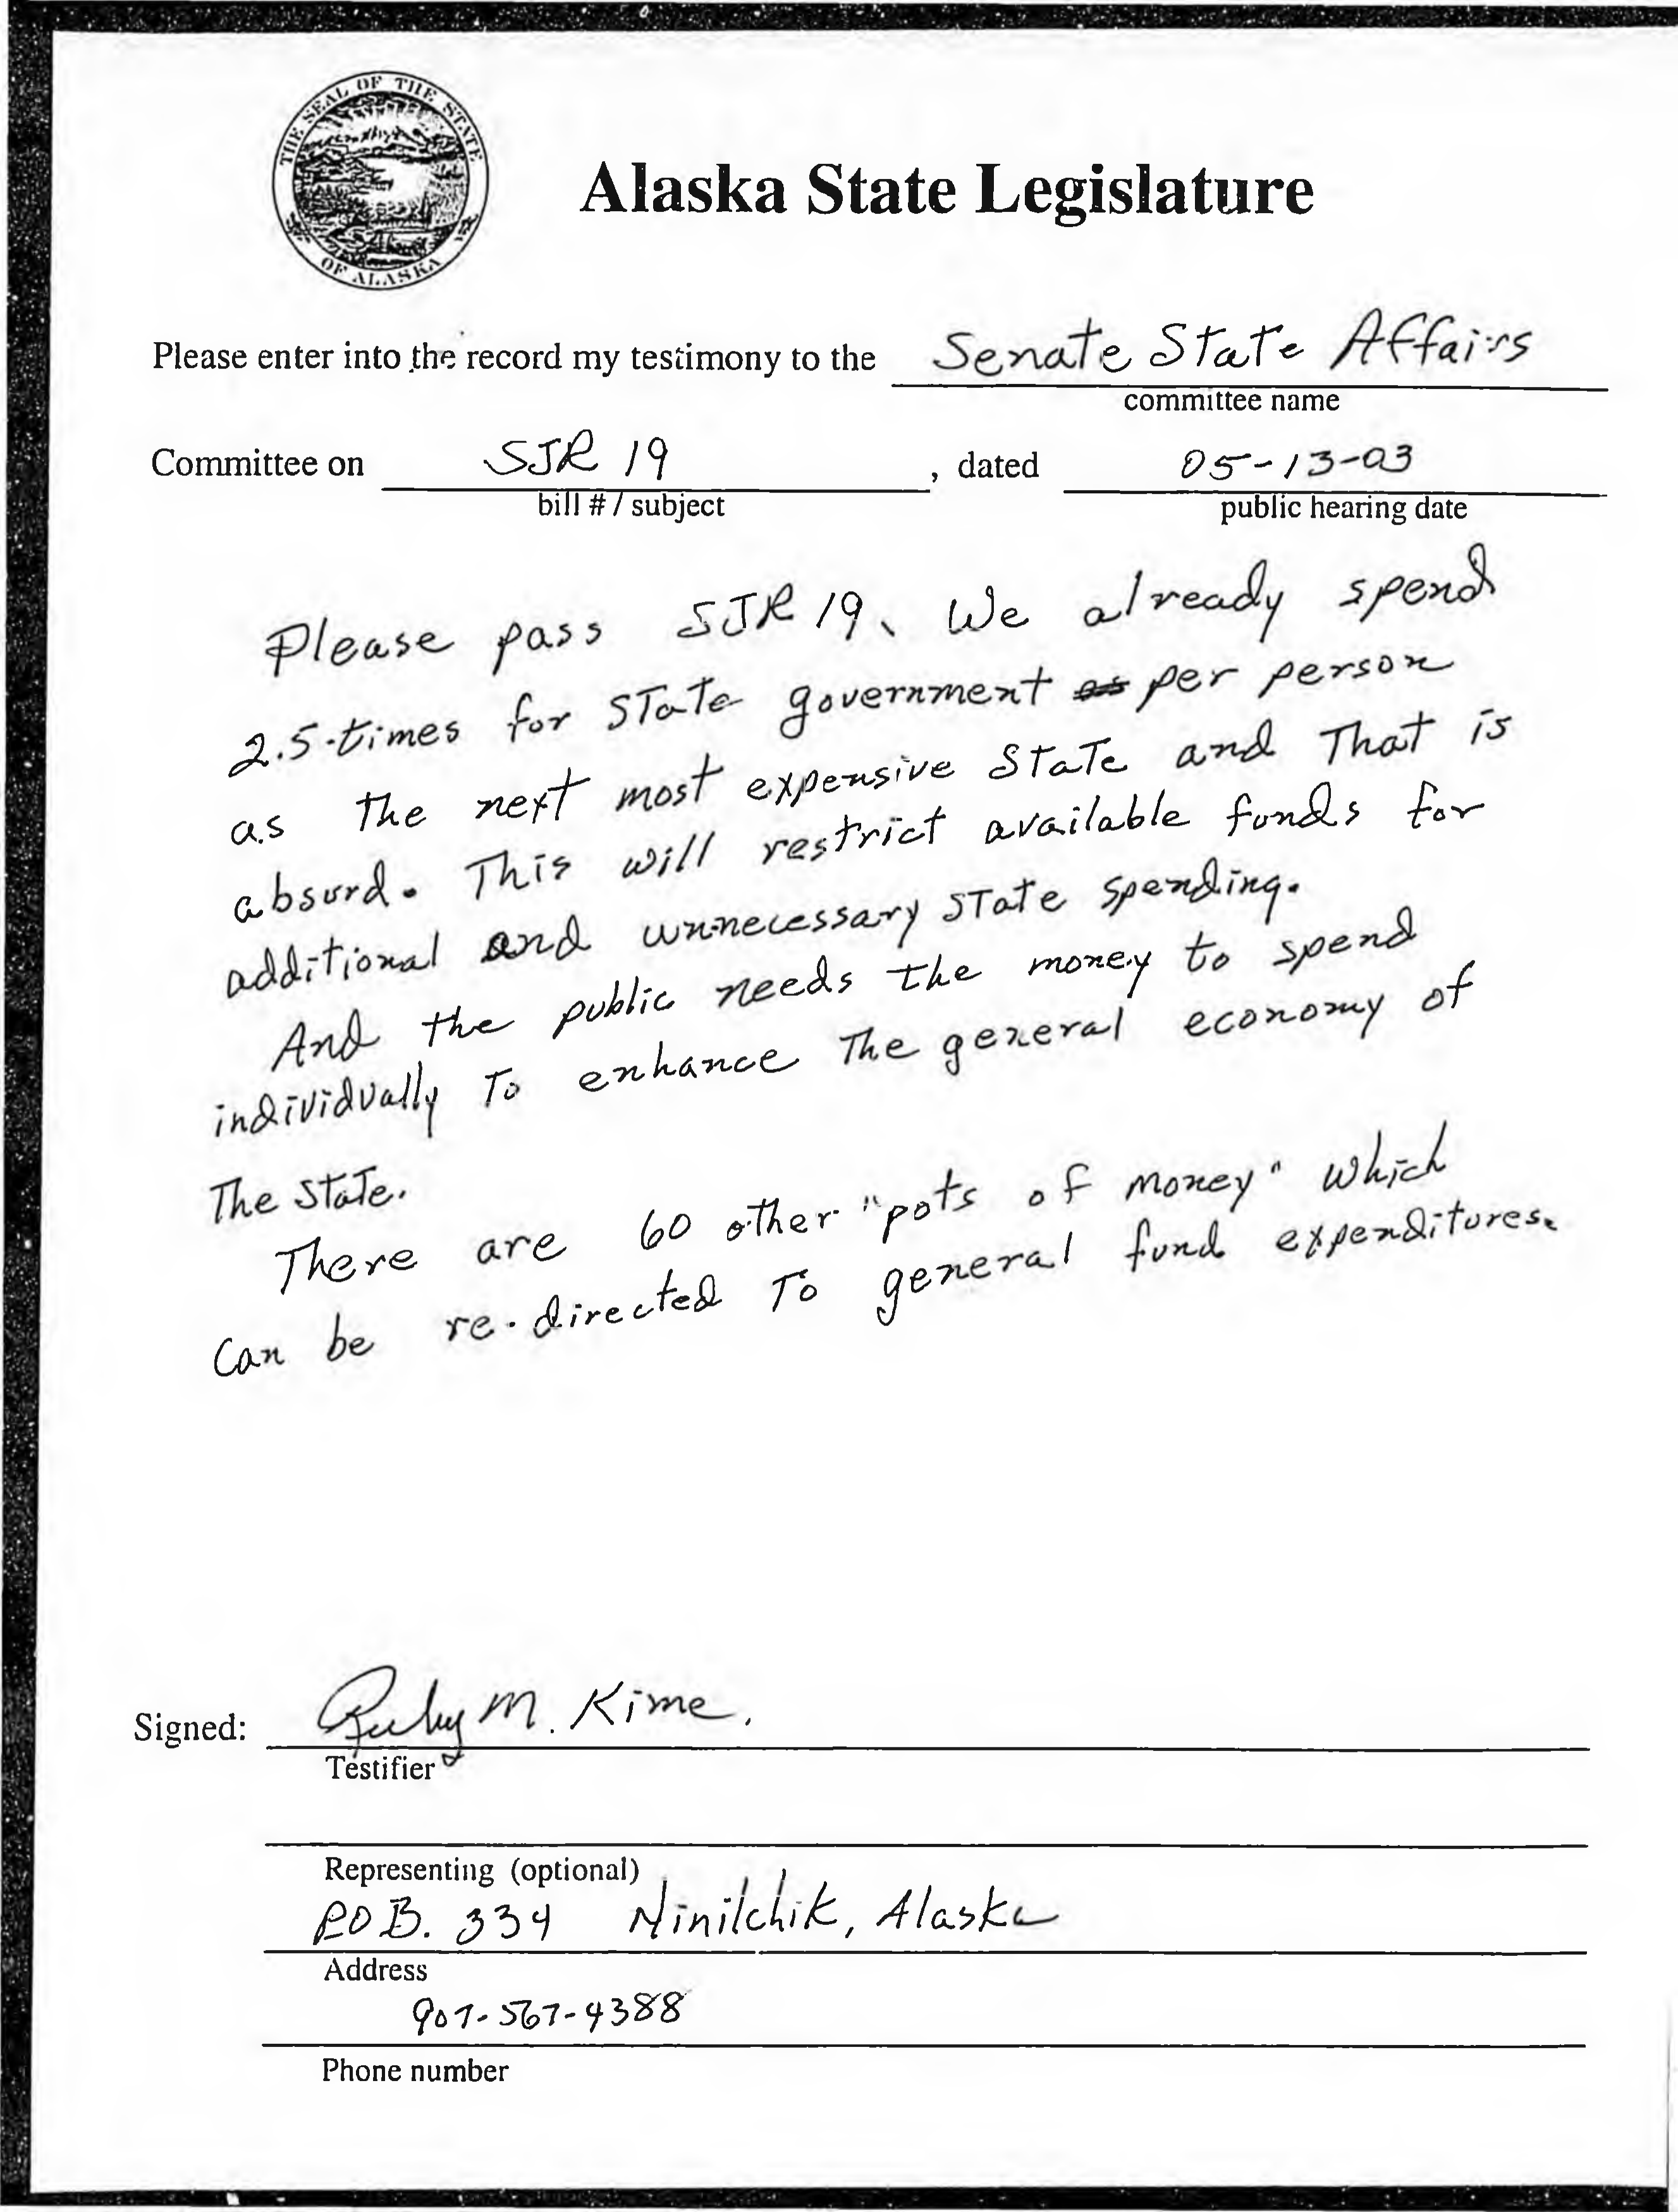 THE SEAL OF THE STATE OF ALASKA
Alaska State Legislature
Please enter into the record my testimony to the Senate State Affairs
committee name
Committee on SJR 19, dated 05-13-03
bill # / subject public hearing date
Please pass SJR 19. We already spend
2.5 times for State government as per person
as the next most expensive State and That is
absurd. This will restrict available funds for
additional and unnecessary State spending.
And the public needs the money to spend
individually To enhance The general economy of
The State.
There are 60 other "pots of money" which
Can be re-directed To general fund expenditures.
Signed: Ruby M. Kime.
Testifier
Representing (optional)
POB. 334 Ninilchik, Alaska
Address
907-567-4388
Phone number